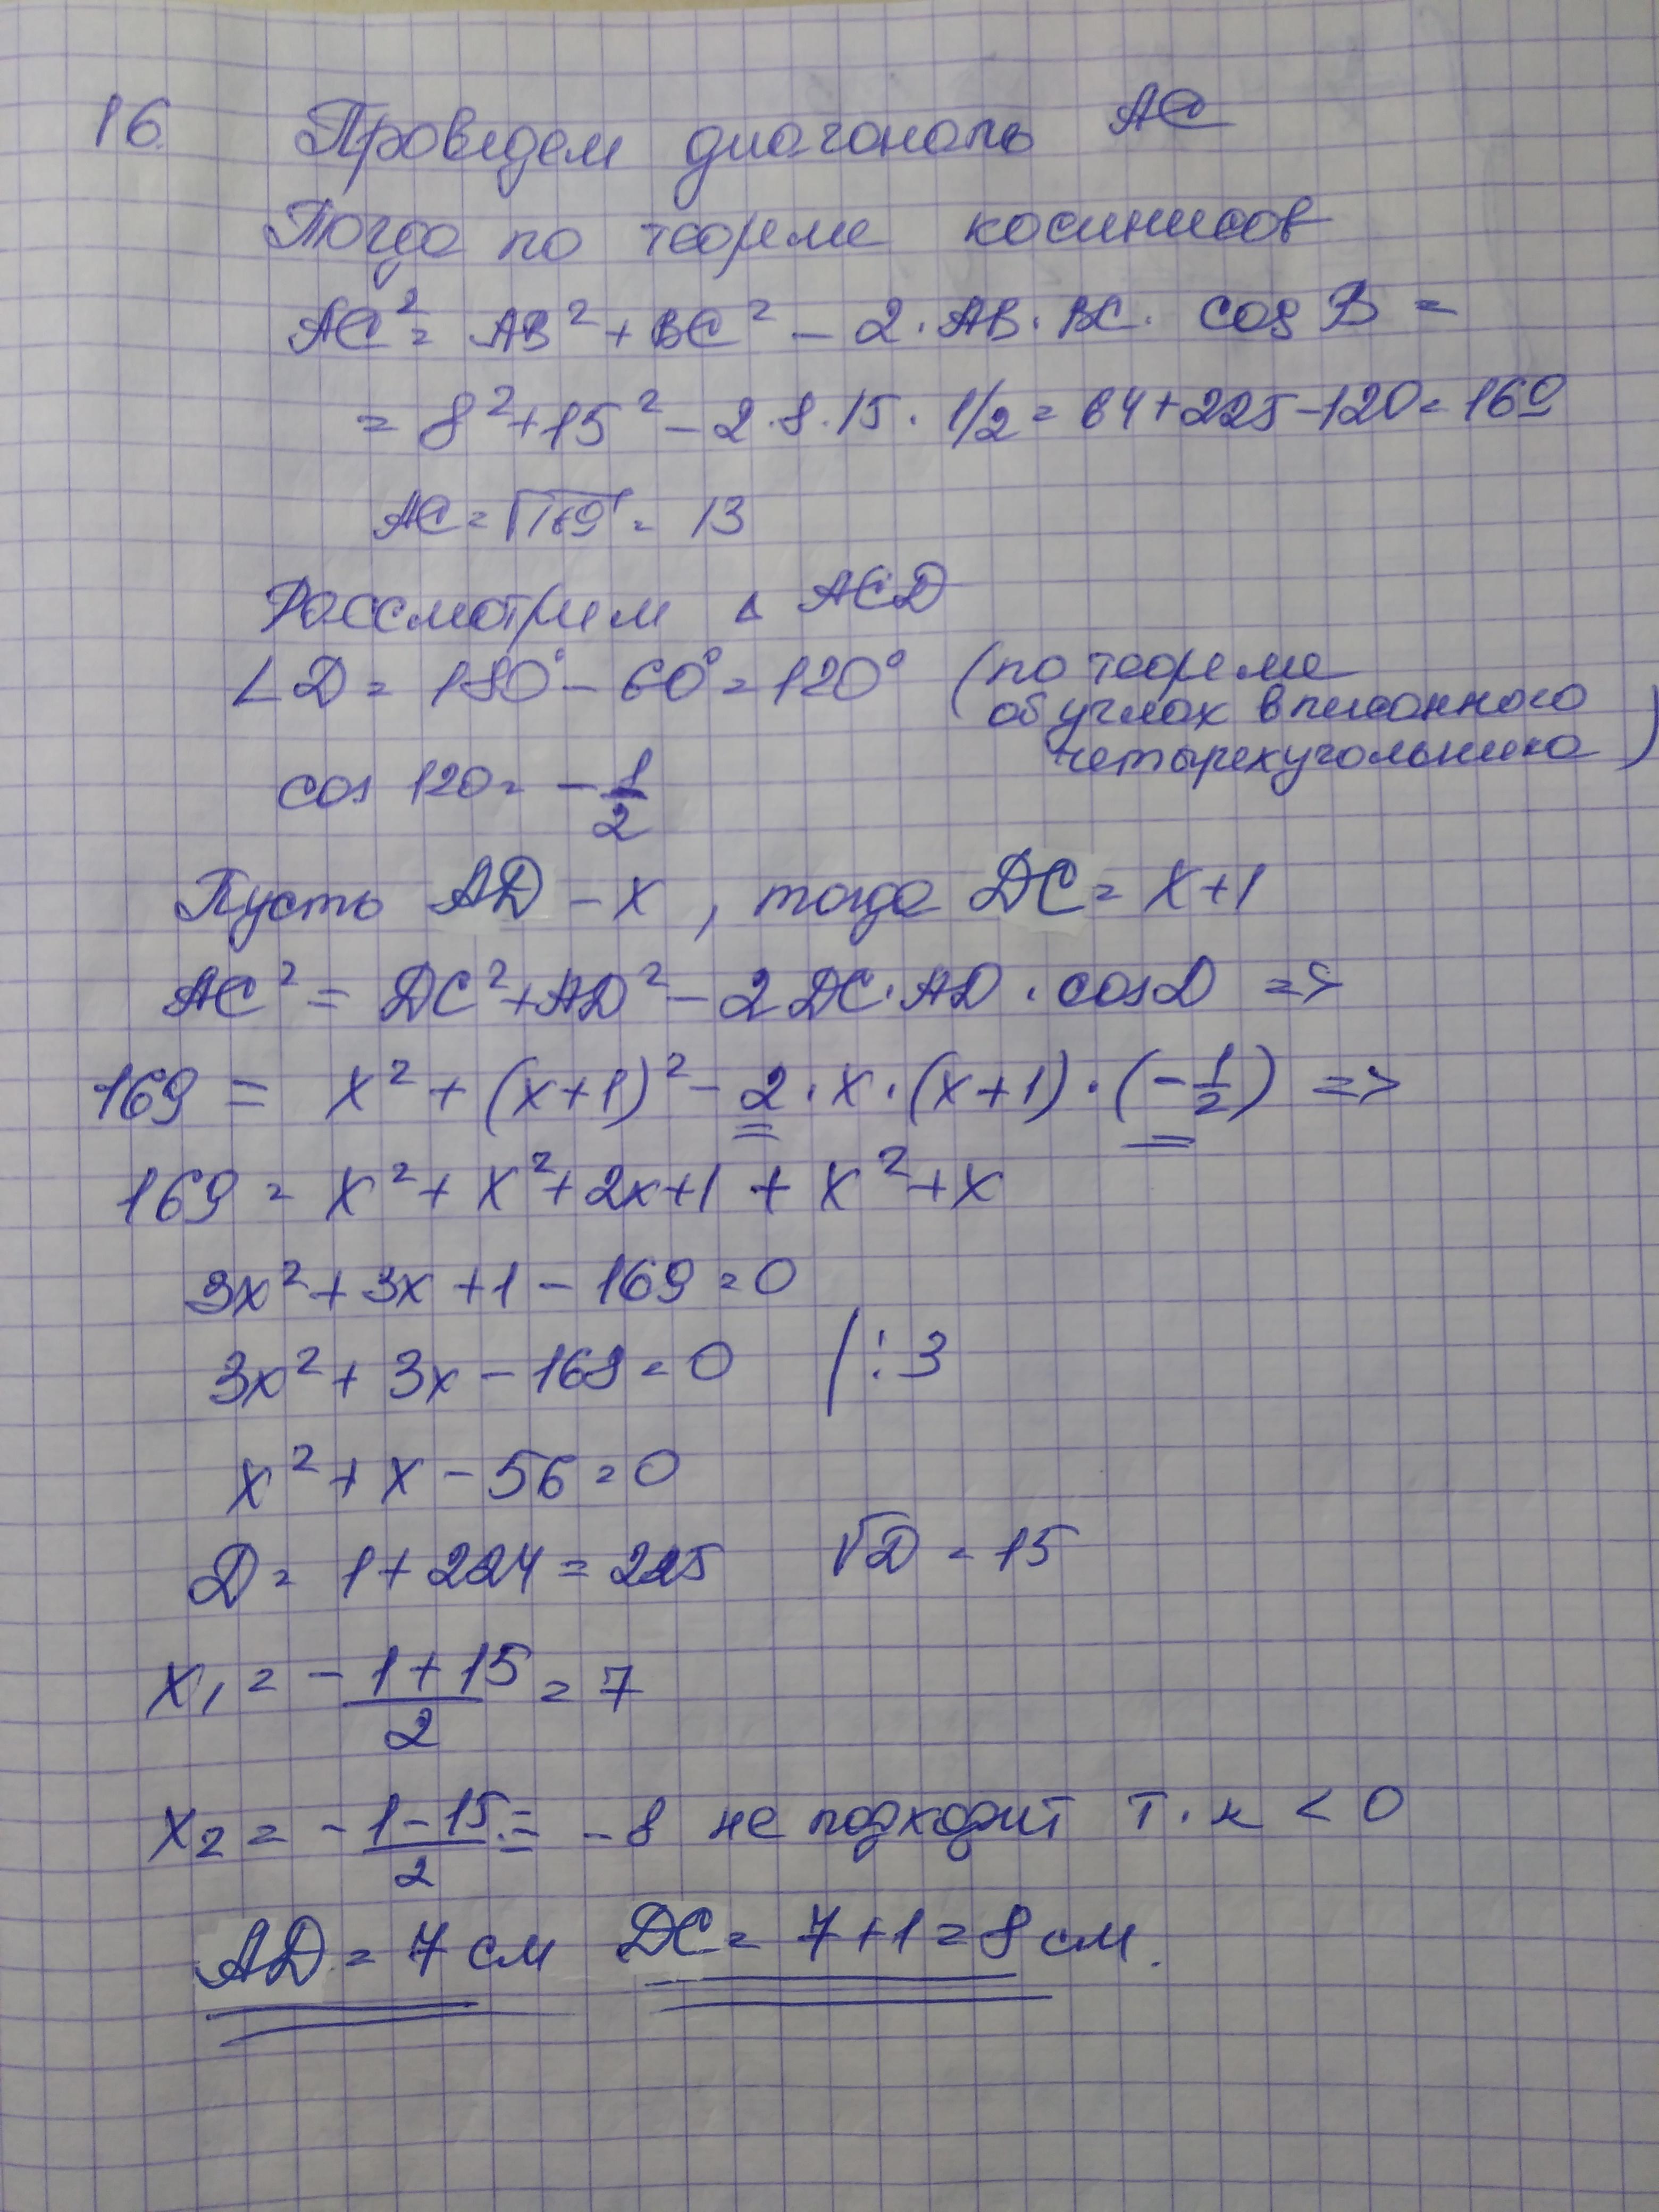 16. Проведем диагональ AC
Тогда по теореме косинусов
AC² = AB² + BC² - 2 · AB · BC · cos B =
= 8² + 15² - 2 · 8 · 15 · 1/2 = 64 + 225 - 120 = 169
AC = √169 = 13
Рассмотрим △ ACD
∠D = 180° - 60° = 120° (по теореме
об углах вписанного
четырехугольника)
cos 120 = -1/2
Пусть AD - x, тогда DC = x+1
AC² = DC² + AD² - 2 DC · AD · cos D =>
169 = x² + (x+1)² - 2 · x · (x+1) · (-1/2) =>
169 = x² + x² + 2x + 1 + x² + x
3x² + 3x + 1 - 169 = 0
3x² + 3x - 168 = 0 / : 3
x² + x - 56 = 0
D = 1 + 224 = 225 √D = 15
x₁ = -1+15/2 = 7
x₂ = -1-15/2 = -8 не подходит т.к < 0
AD = 7 см DC = 7+1 = 8 см.